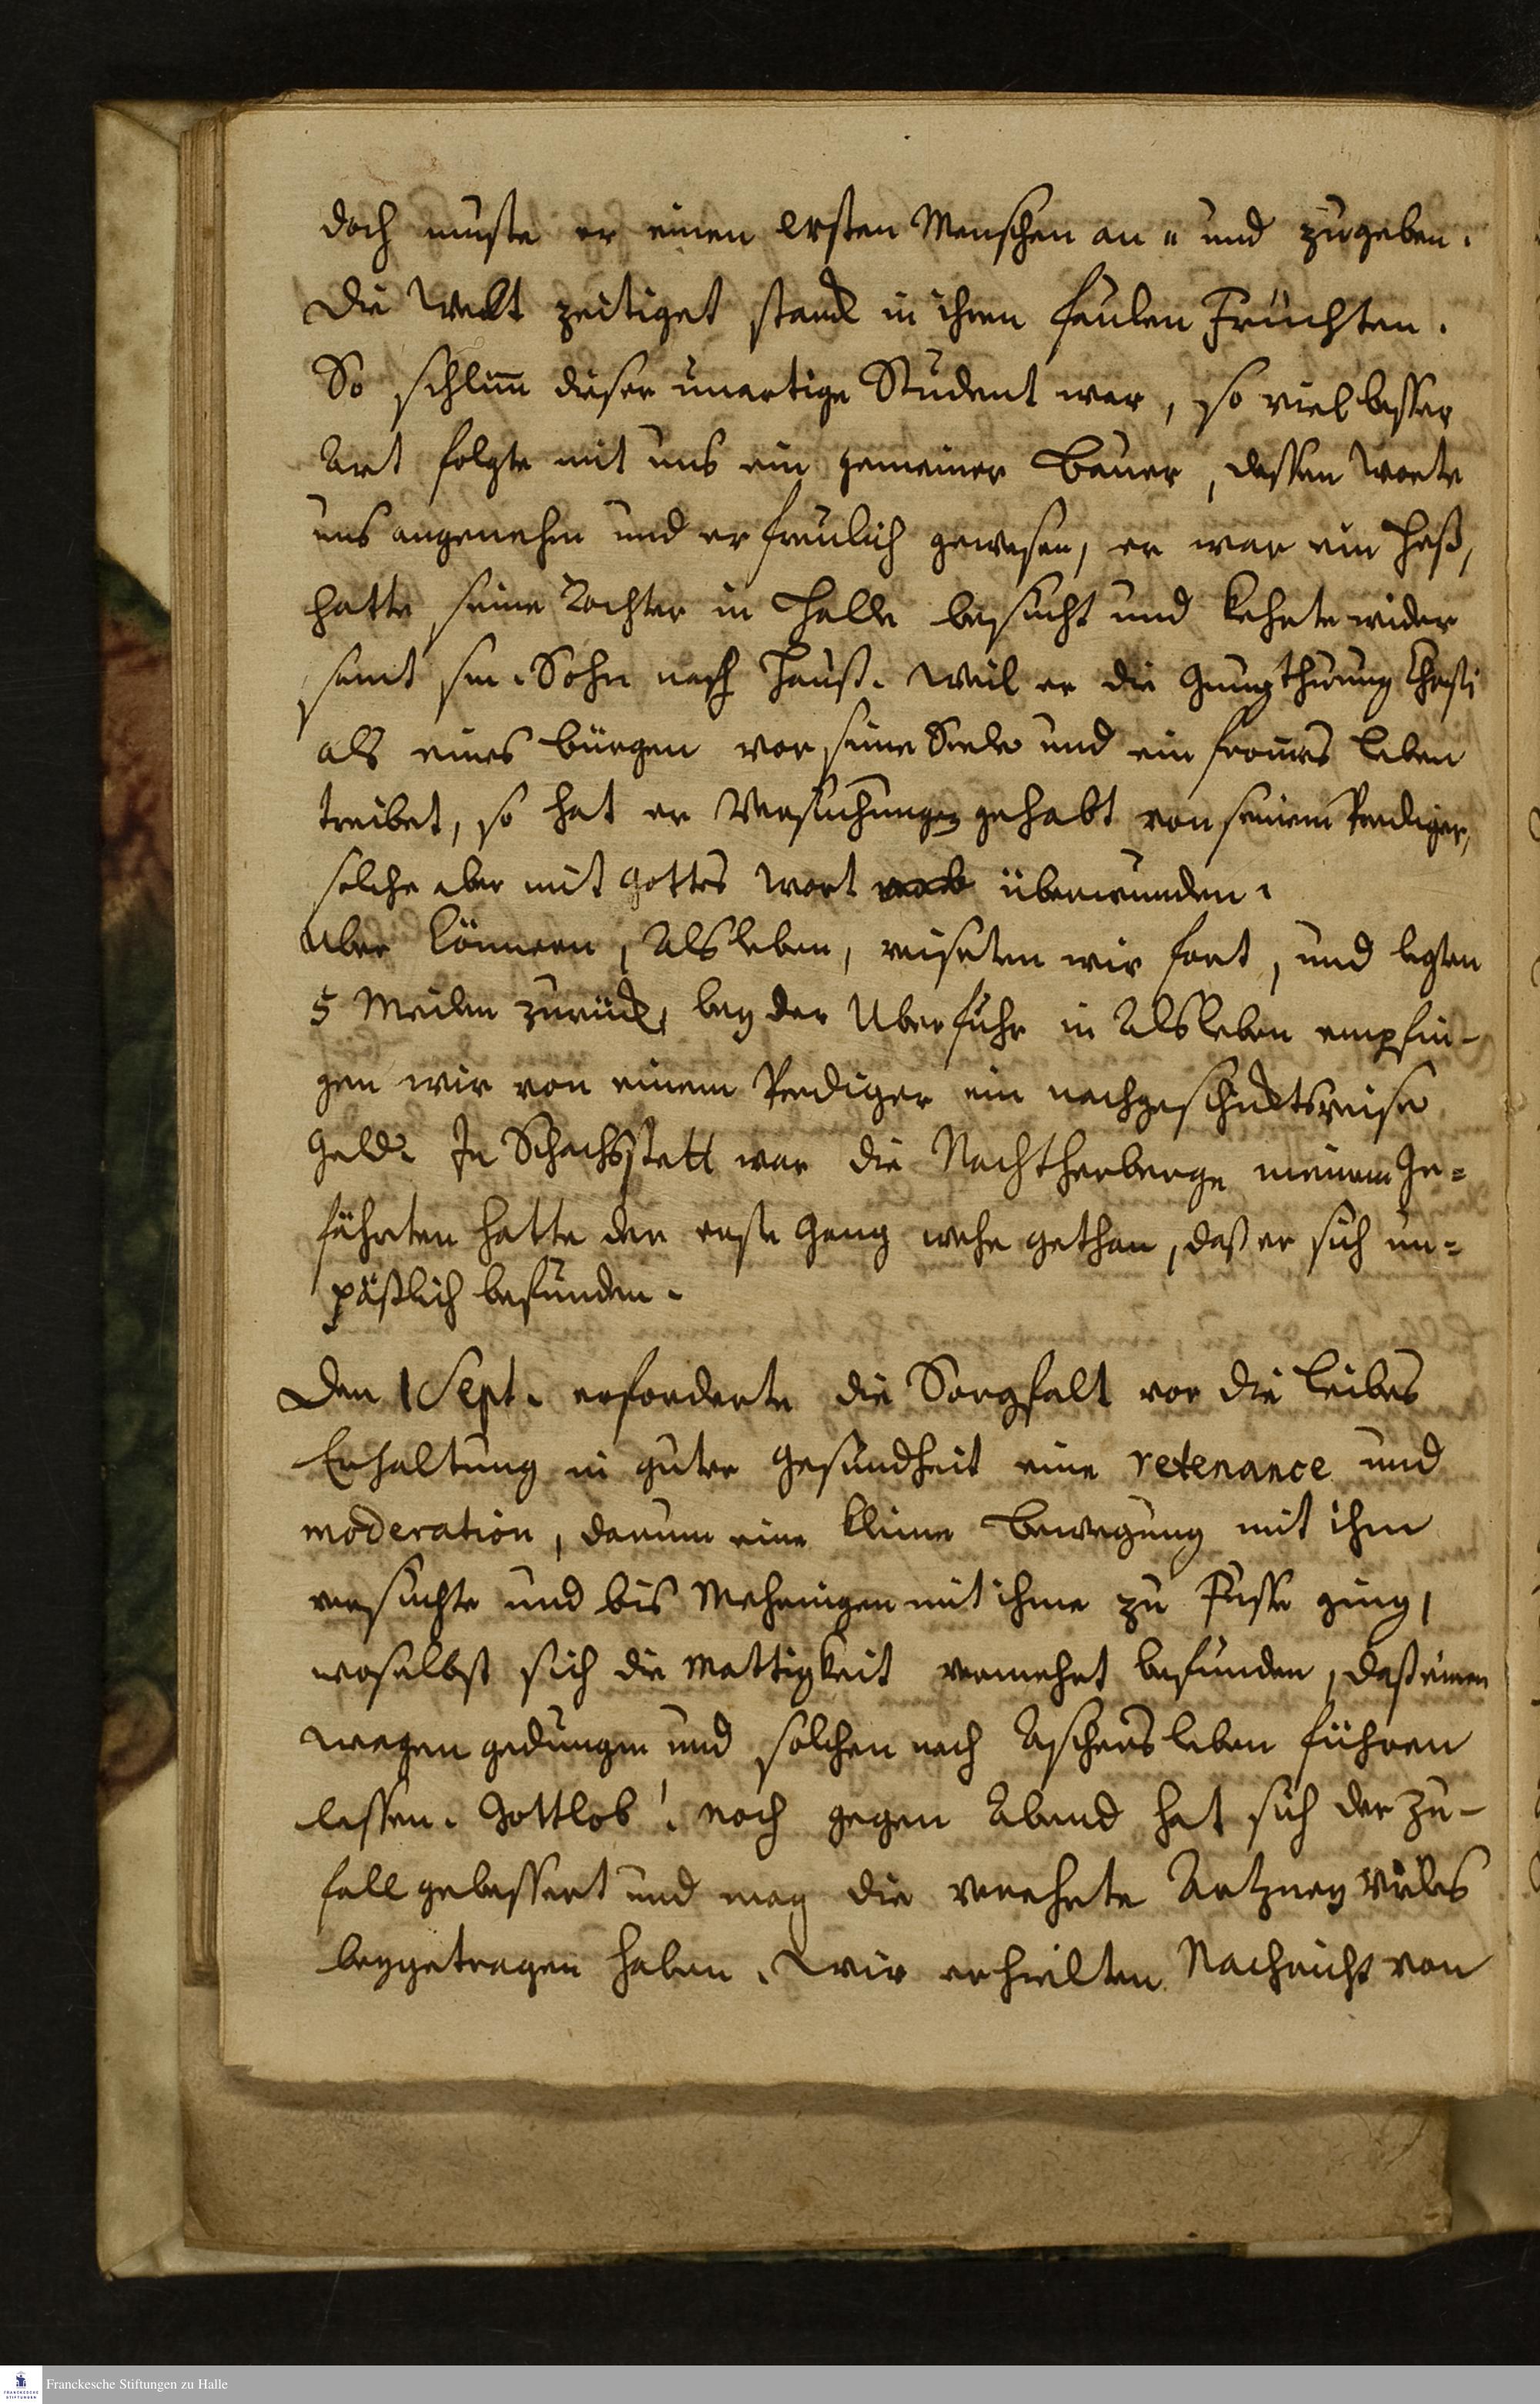 doch muste er einen ersten Menschen an- und zugeben.
Die Welt zeitiget stand in ihren faulen Früchten.
So schlim̄ dieser unartige Student war, so viel besser
Art folgte mit uns ein gemeiner Bauer, dessen worte
uns angenehm und erfreulich gewesen, er war ein Heß,
hatte seine Tochter in Halle besucht und kehrte wider
samt sm. Sohn nach Hauß. Weil er die Gnugthuung Chʳsti
als eines bürgen vor seine Seele und ein from̄es leben
treibet, so hat er Versuchungen gehabt von seinem Prediger,
solche aber mit Gottes Wort überwunden.
Uber Cönnern, Alsleben, reiseten wir fort, und legten
5 Meilen zurück, bey der Uberfuhr in Alsleben empfin-
gen wir von einem Prediger ein nachgeschicktes reise
Geld. In Schachsstett war die Nachtherberge meinem Ge-
fährten hatte der erste Gang wehe gethan, daß er sich un-
päßlich befunden.
Den 1 Sept. erforderte die Sorgfalt vor die leibes
Erhaltung in guter Gesundheit eine retenance und
moderation, darum eine kleine Bewegung mit ihm
versuchte und bis Mehringen mit ihme zu Fusse ging,
woselbst sich die Mattigkeit vermehrt befunden, daß einen
Wagen gedungen und solchen nach Aschersleben führen
lassen. Gottlob! noch gegen Abend hat sich der Zu-
fall gebessert und mag die verehrte Artzney vieles
beygetragen haben. Wir erhielten Nachricht von
Franckesche Stiftungen zu Halle